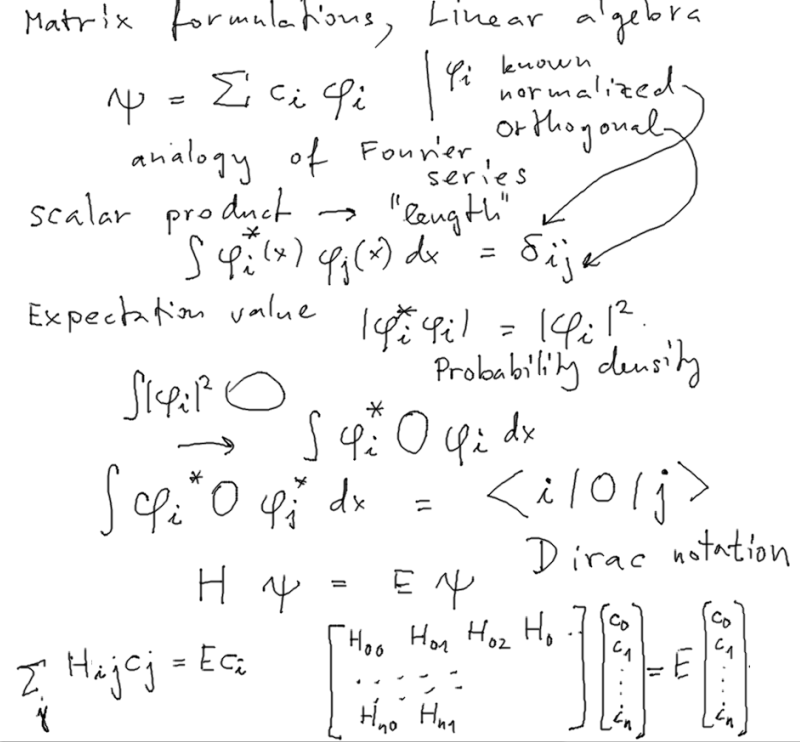 Matrix formulations, Linear algebra
ψ = Σ ci φi | φi known
normalized
orthogonal
analogy of Fourier
series
scalar product → "length"
∫ φi*(x) φj(x) dx = δij
Expectation value |φi* φi| = |φi|².
Probability density
∫|φi|² O
→ ∫ φi* O φi dx
∫ φi* O φj* dx = <i|O|j>
Dirac notation
H ψ = E ψ
Σj Hij cj = E ci [H00 H01 H02 H0 . . ..... Hn0 Hn1] [c0 c1 ⋮ cn] = E [c0 c1 ⋮ cn]